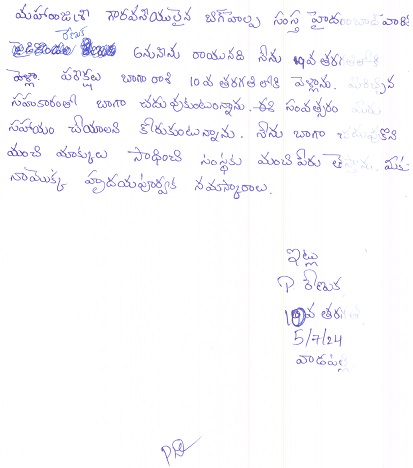 మహారాజశ్రీ గౌరవనీయులైన బిగ్‌హెల్ప్ సంస్త హైదరాబాద్ వారికి
రేణుక
6నునిను రాయునది నేను 9వ తరగతి
పరీక్షలు బాగా రాశి 10వ తరగతిలోకి వెళ్లాను.
సహకారంతో బాగా చదువుకుంటున్నాను. ఈ సంవత్సరం
సహాయం చేయాలని కోరుకుంటున్నాను. నేను బాగా చదువుకొని
మంచి మార్కులు సాధించి సంస్థకు మంచి పేరు తెస్తాను. మీకు
నాయొక్క హృదయపూర్వక నమస్కారాలు.
ఇట్లు
P రేణుక
10వ తరగతి
5/7/24
వాడపల్లి